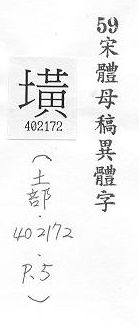 59宋體母稿異體字
墴
402172
(土部.402172.P.5)